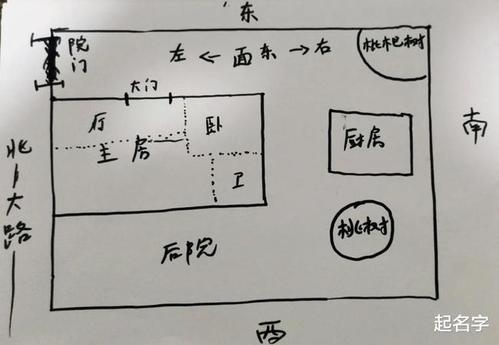 东
院门
左 ← 面东 → 右
枇杷树
大门
厅
卧
主房
卫
厨房
南
北
大路
桃树
后院
西
起名字